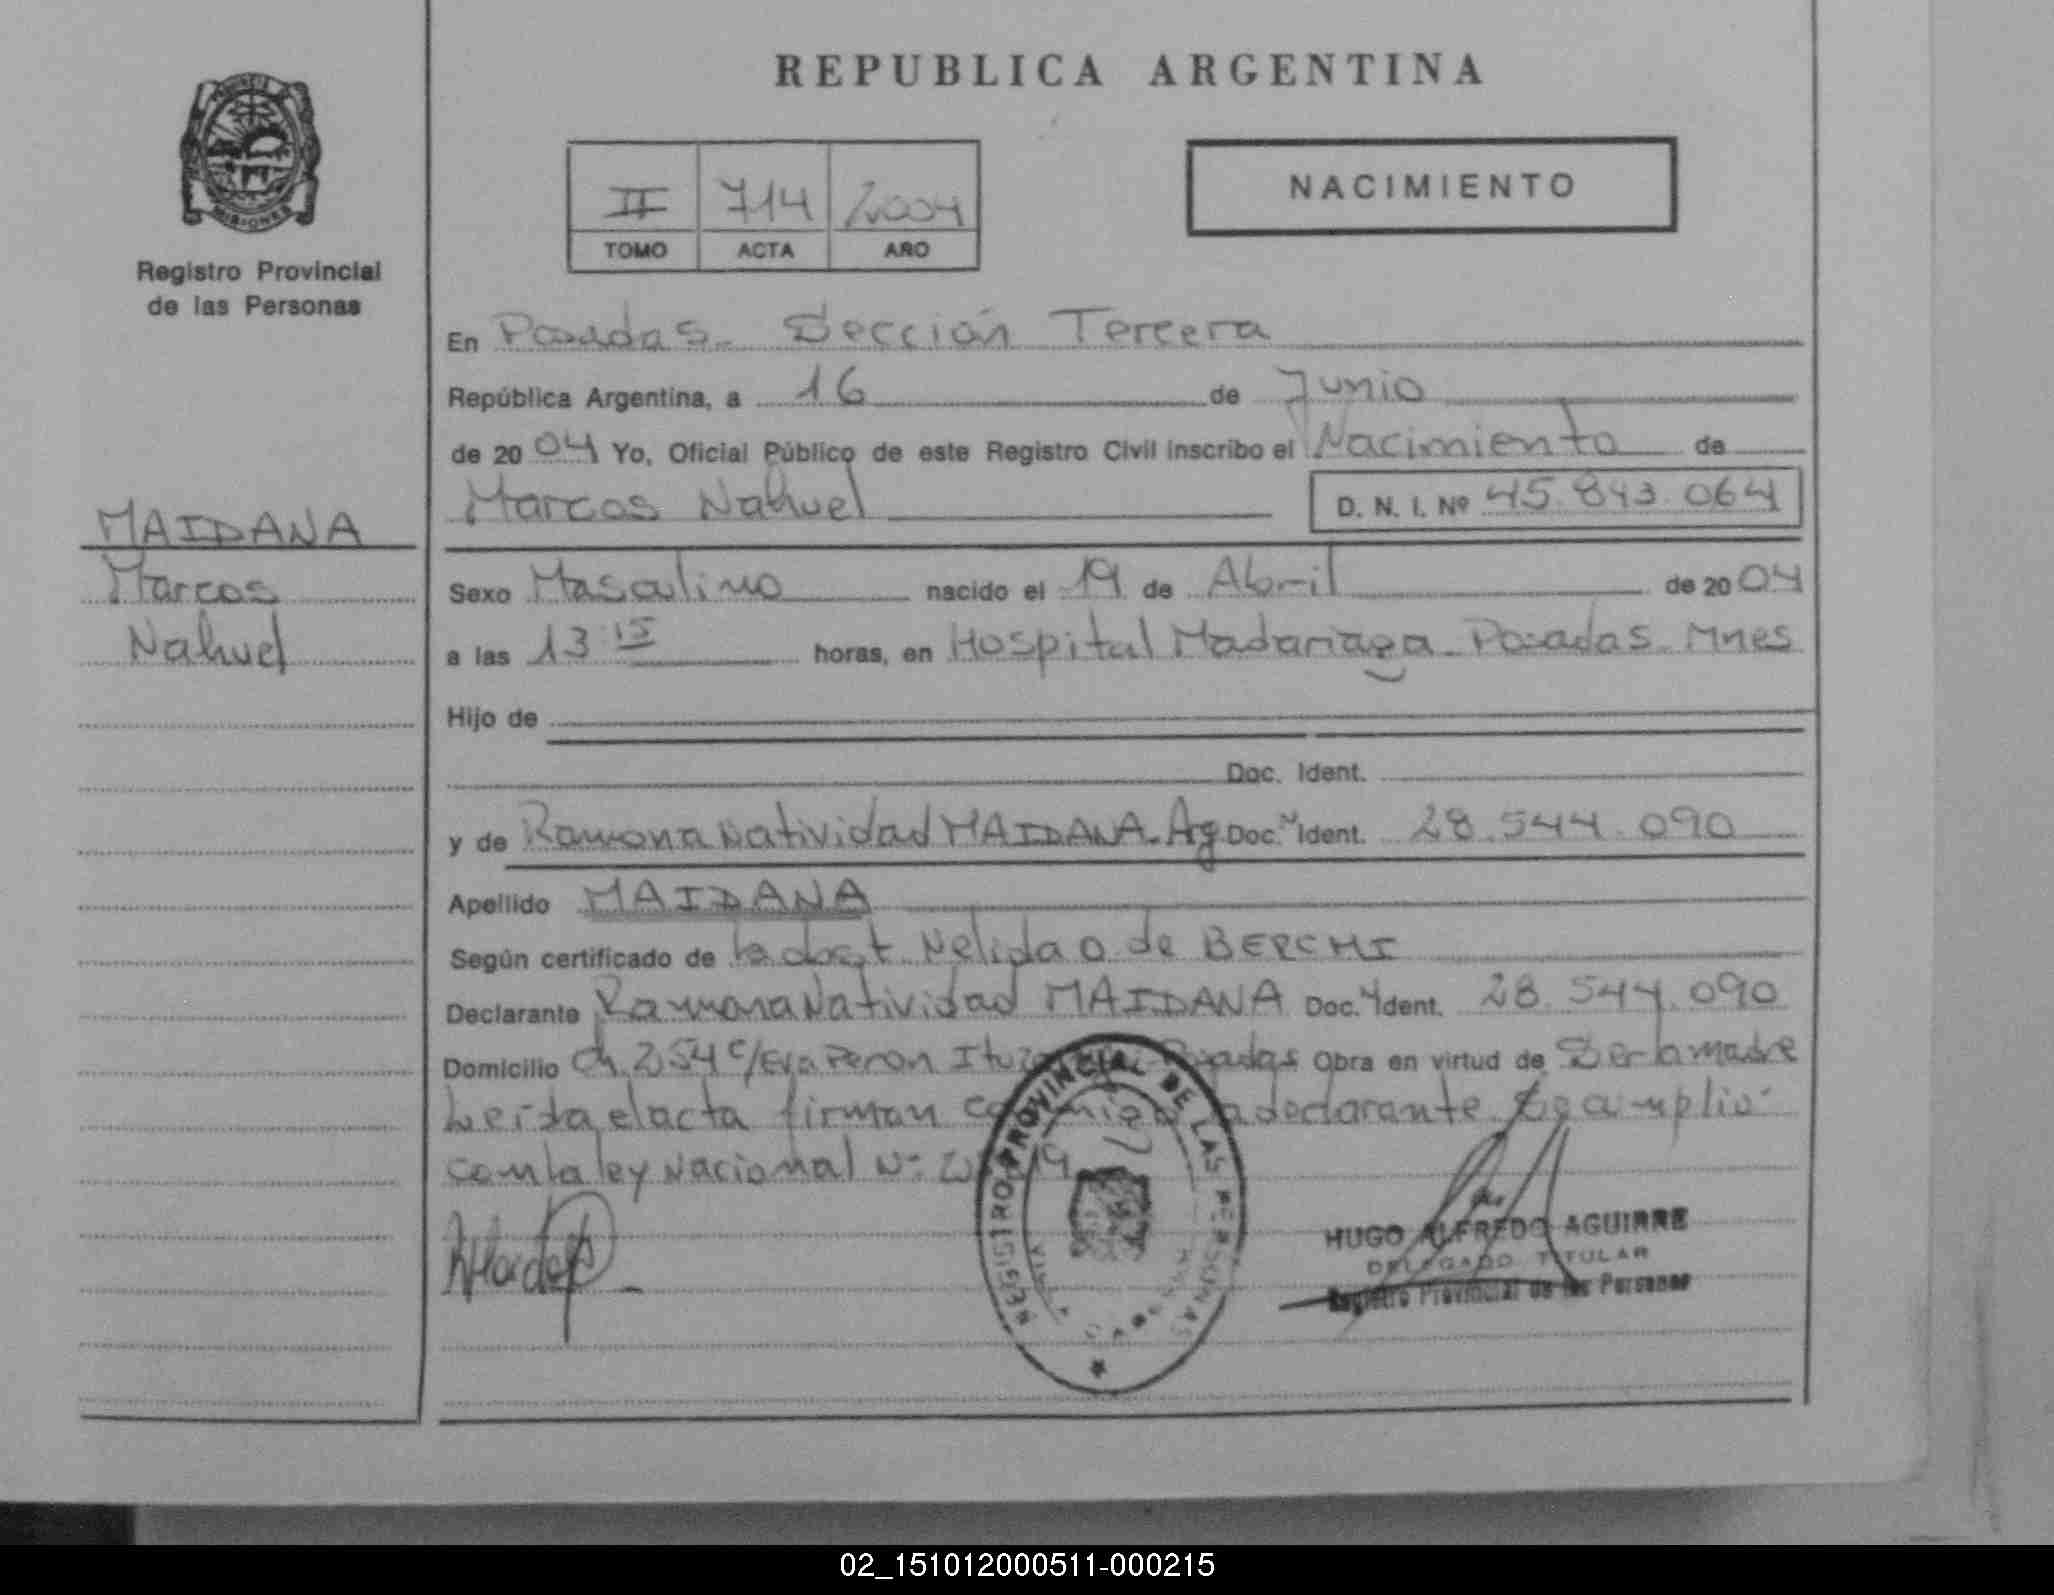 REPUBLICA ARGENTINA
PROVINCIA DE MISIONES
Registro Provincial
de las Personas
II 714 2004
TOMO ACTA AÑO
NACIMIENTO
En Posadas - Sección Tercera
República Argentina, a 16 de Junio
de 2004 Yo, Oficial Público de este Registro Civil inscribo el Nacimiento de
Marcos Nahuel D. N. I. Nº 45.843.064
MAIDANA
Marcos
Nahuel
Sexo Masculino nacido el 19 de Abril de 2004
a las 13:15 horas, en Hospital Madariaga - Posadas - Mnes
Hijo de
Doc. Ident.
y de Ramona Natividad MAIDANA - Arg Doc. Ident. 28.544.090
Apellido MAIDANA
Según certificado de la obst. Nelida O de BERCHI
Declarante Ramona Natividad MAIDANA Doc. Ident. 28.544.090
Domicilio Ch. 254 c/ Eva Peron Posadas Obra en virtud de Ser la madre
Leida el acta firman la declarante Se cumplio
con la ley Nacional Nº
REGISTRO PROVINCIAL DE LAS PERSONAS
HUGO ALFREDO AGUIRRE
DELEGADO TITULAR
Registro Provincial de las Personas
02_151012000511-000215